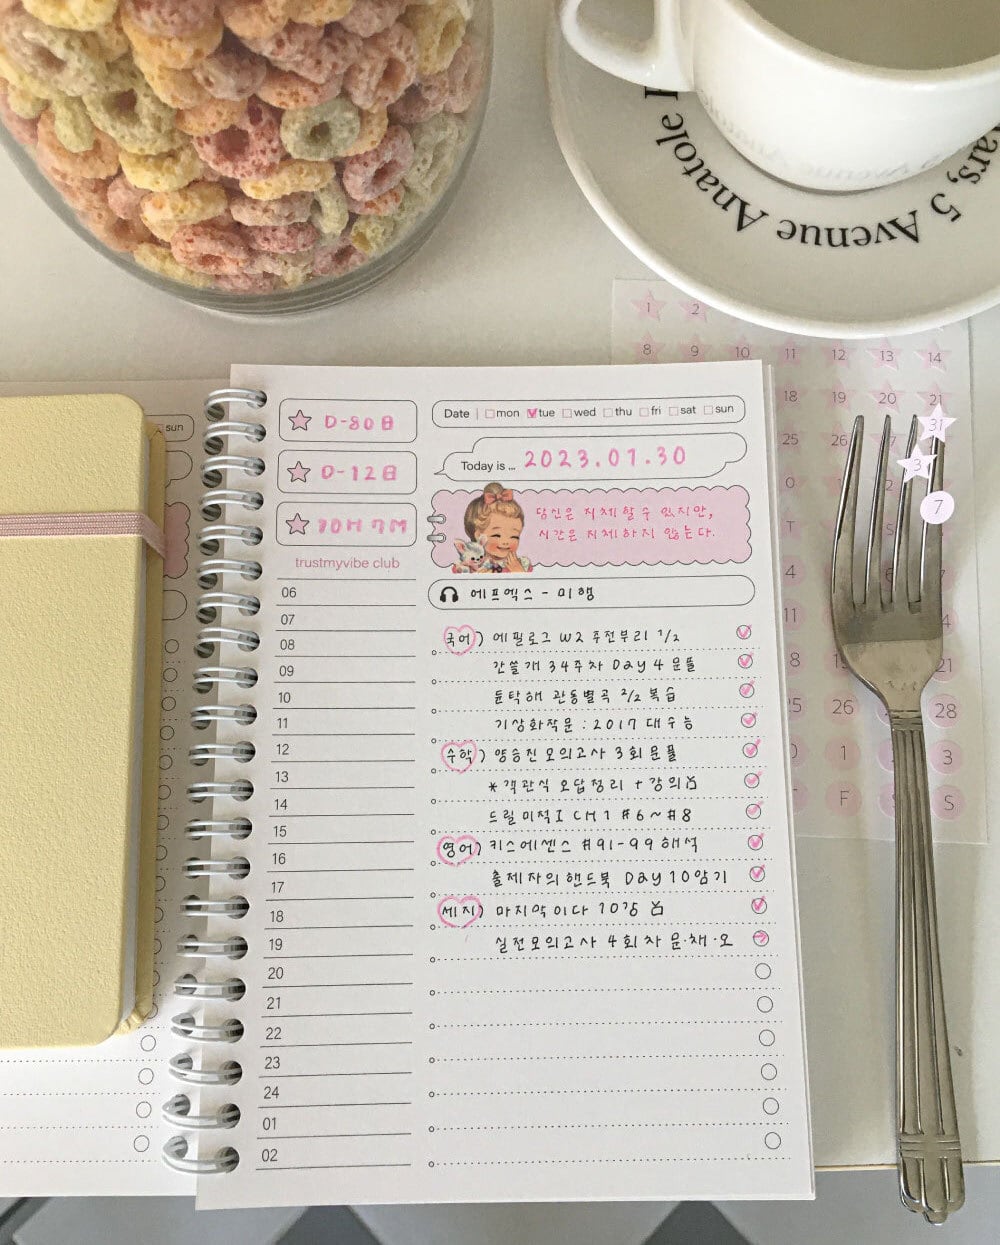 5 Avenue Anatole
1 2
8 9 10 11 12 13 14
18 19 20 21
31
3
7
25 26
28
sun
D-80日
D-12日
10H 7M
trustmyvibe club
Date | mon tue wed thu fri sat sun
Today is ... 2023.01.30
당신은 지체할 수 있지만,
시간은 지체하지 않는다.
에프엑스 - 미행
국어) 에필로그 W2 주전부리 1/2
간쓸개 34주차 Day 4 운플
듄탁해 관동별곡 2/2 복습
기상화작문 : 2017 대수능
수학) 양승진 모의고사 3회 운플
* 객관식 오답정리 + 강의
드릴 미적I CH1 #6~#8
영어) 키스에센스 #91-99 해석
출제자의 핸드북 Day 10 암기
세지) 마지막이다 10강
실전모의고사 4회차 문·채·오
06
07
08
09
10
11
12
13
14
15
16
17
18
19
20
21
22
23
24
01
02